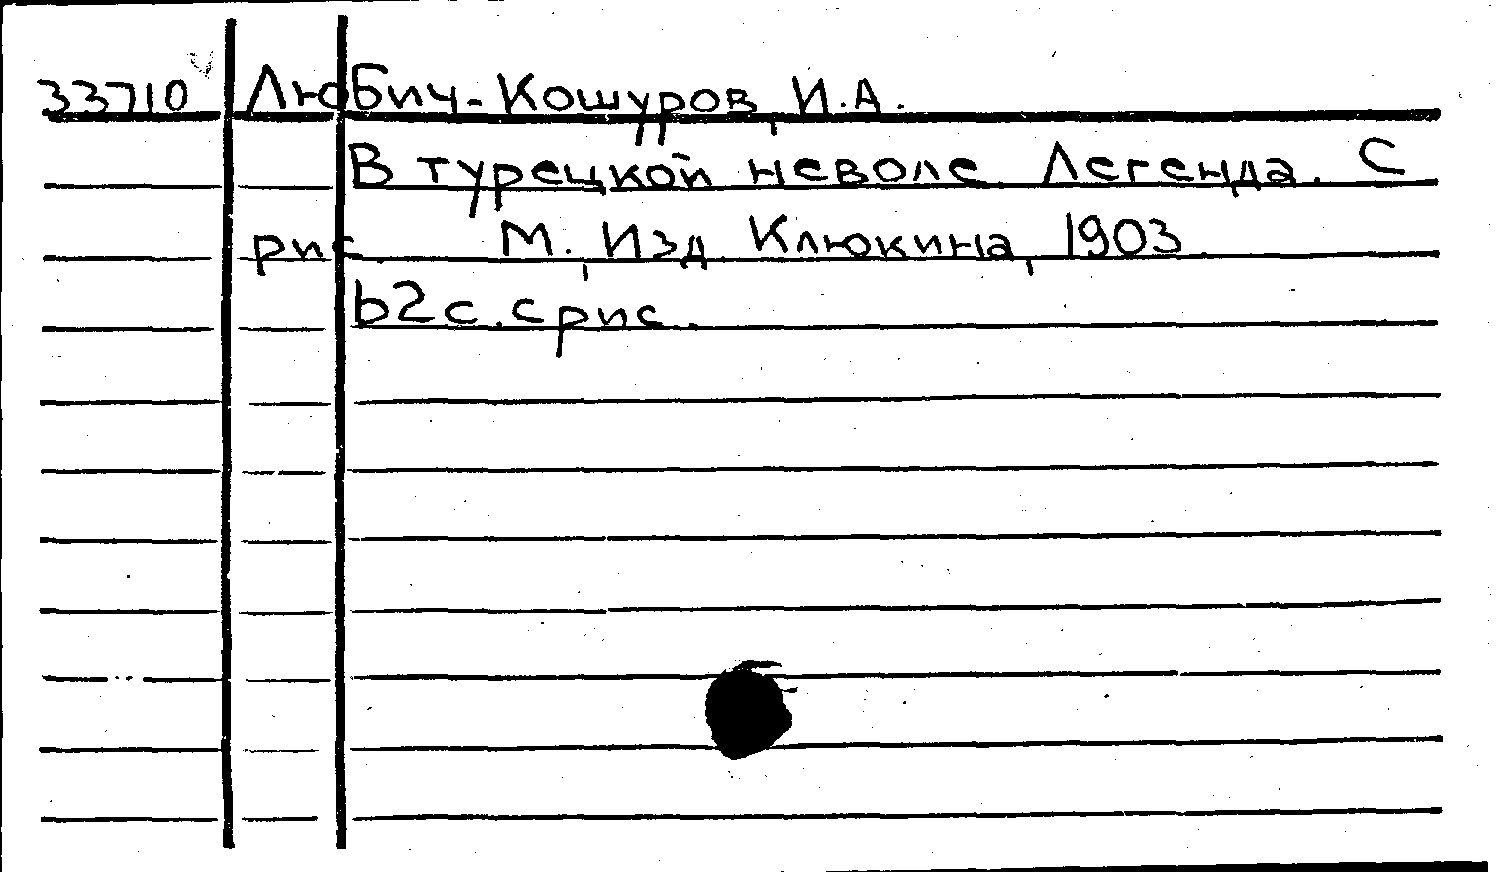 33710 Любич-Кошуров, И.А.
В турецкой неволе. Легенда. С
рис. М., Изд. Клюкина, 1903.
62 с. с рис.